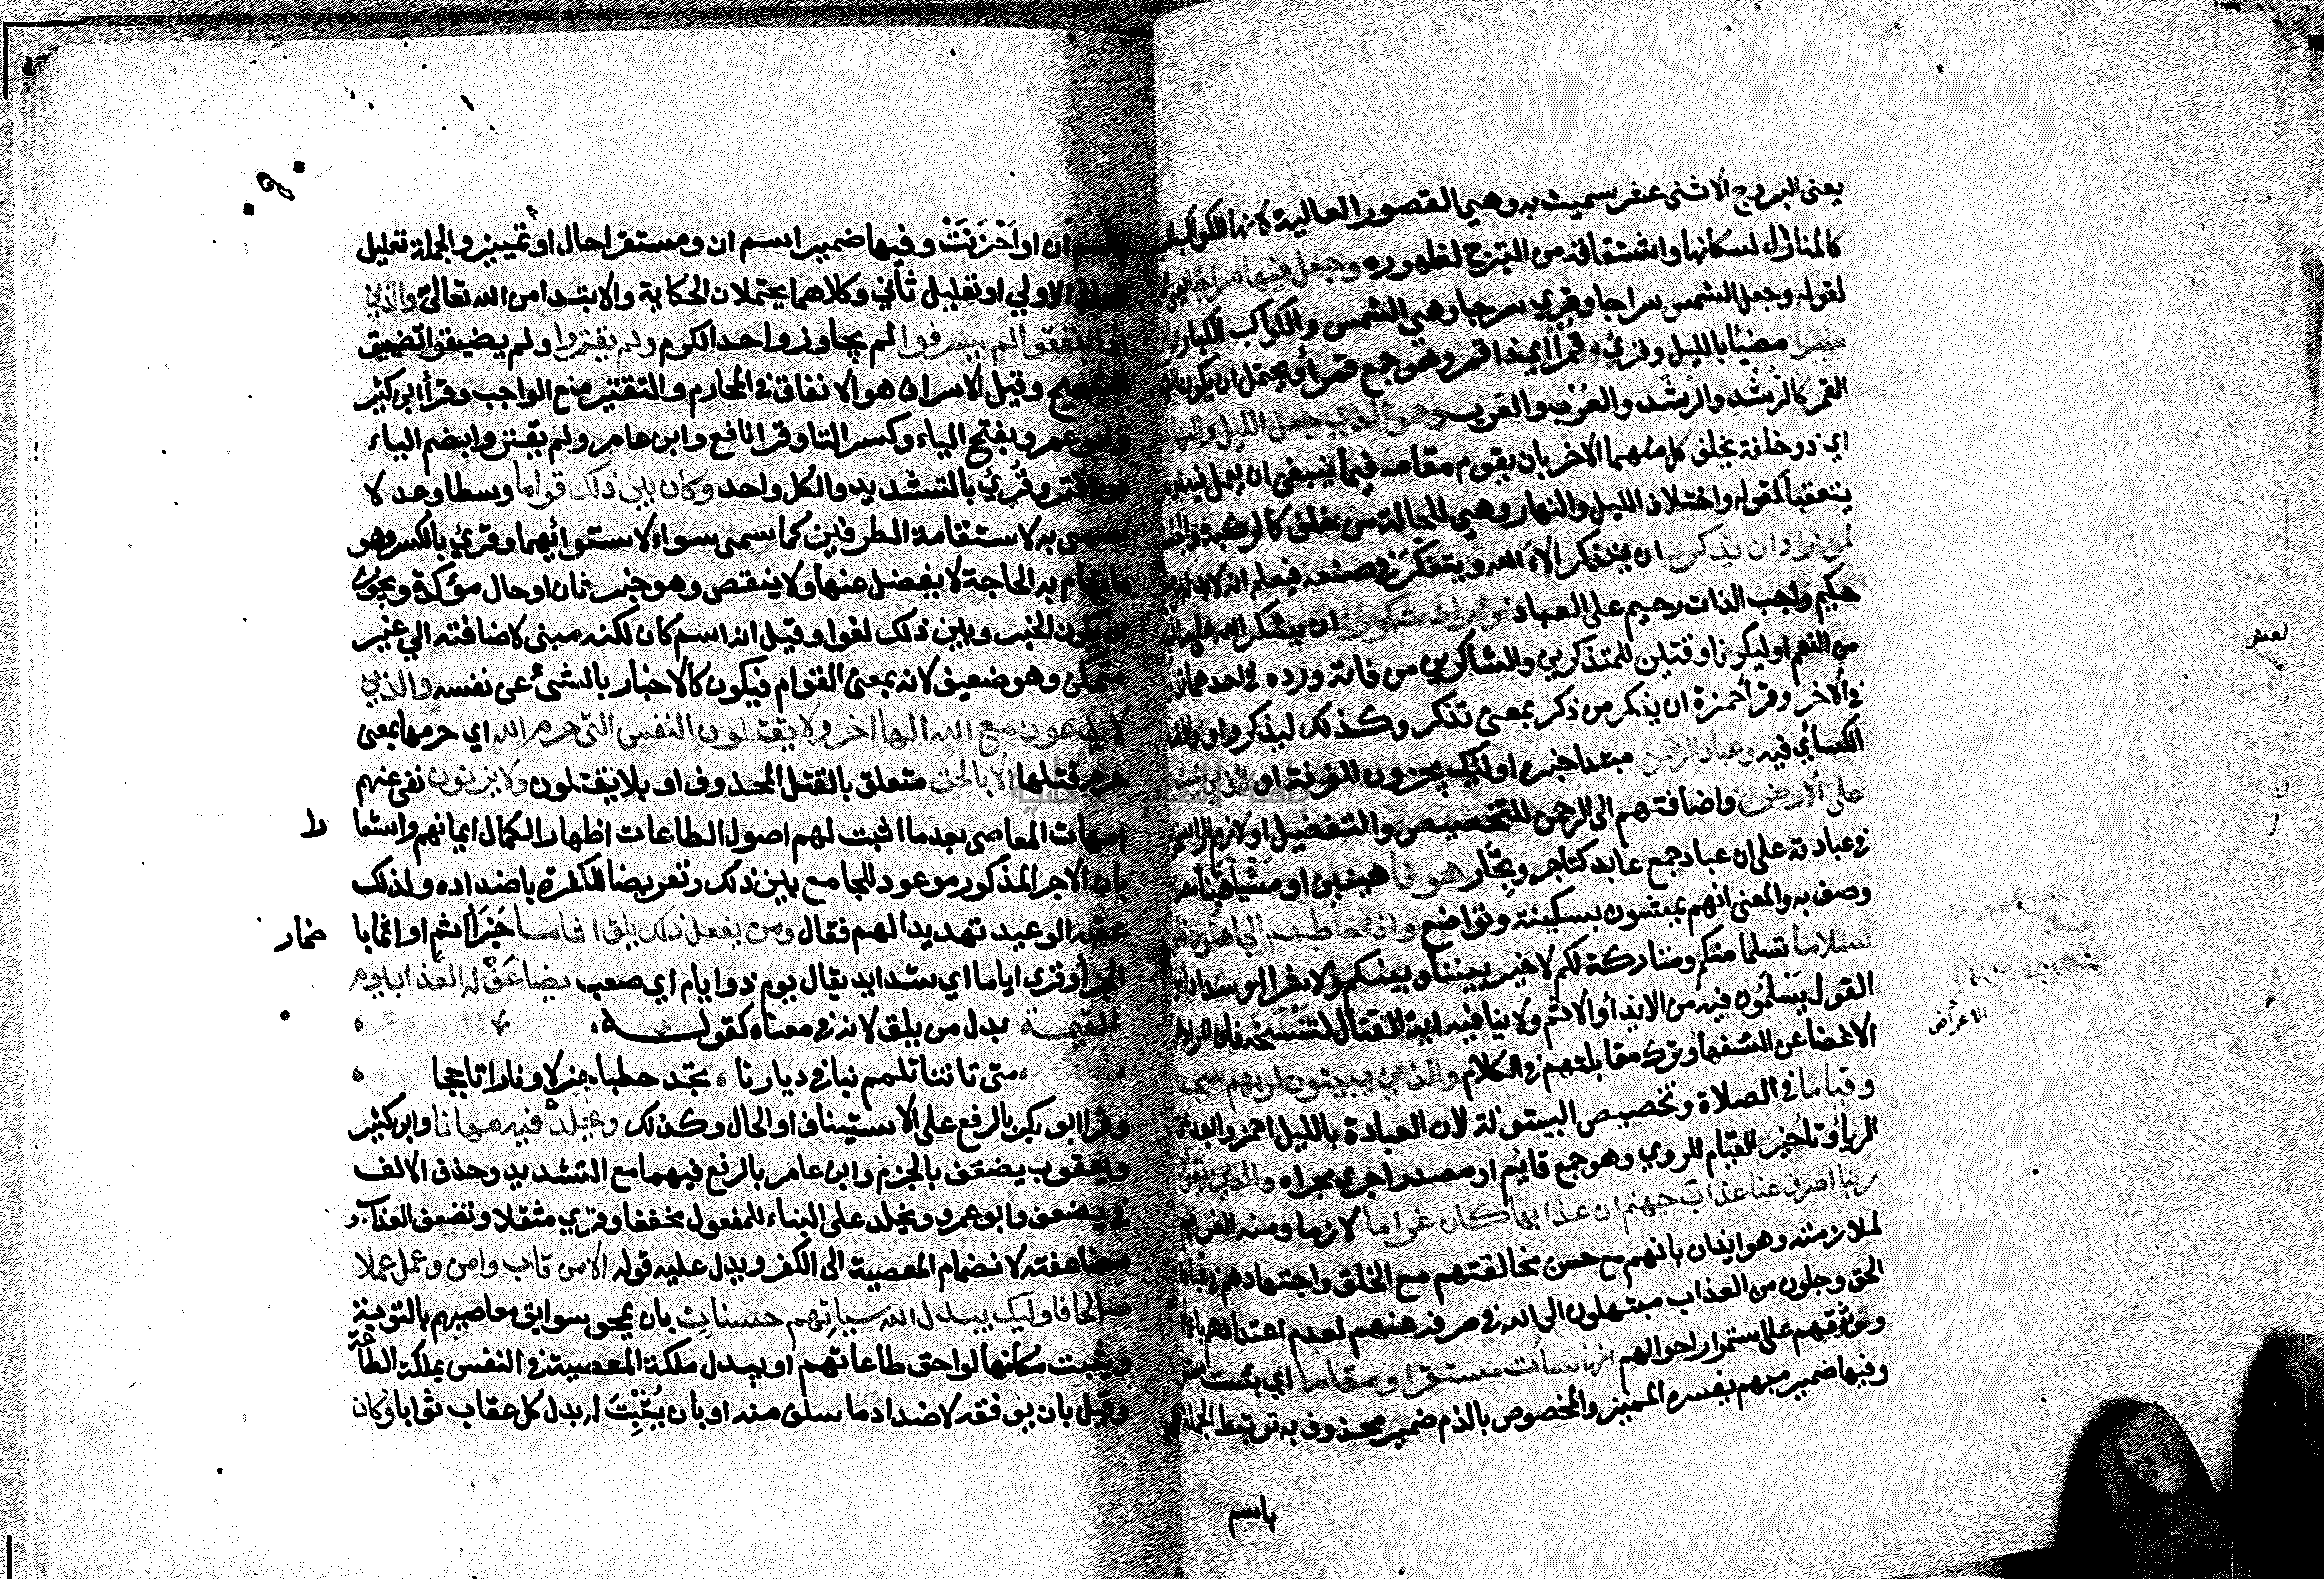 يعنى البروج الاثنى عشر سميت به وهي القصور العالية لانها للكواكب
كالمنازل لسكانها واشتقاقه من التبرج لظهوره وجعل فيها سراجا يعنى
لقوله وجعل الشمس سراجا وقرئ سرجا وهي الشمس والكواكب الكبار
منيرا مضيئا بالليل وقرئ وقمرا اي ذا قمر وهو جمع قمرا ويحتمل ان يكون
القمر كالرُشْد والرَشَد والعُرْب والعَرَب وهو الذي جعل الليل والنهار
اي ذو خلفة يخلف كل منهما الاخر بان يقوم مقامه فيما ينبغي ان يعمل فيه
يتعقبا لقوله واختلاف الليل والنهار وهي للحالة من خلف كالركبة والجلسة
لمن اراد ان يذكر ان يتذكر الاء الله ويتفكر في صنعه فيعلم انه لا بد له
حكيم واجب الذات رحيم على العباد او اراد شكورا ان يشكر الله على ما
من النعم او ليكونا وقتين للمتذكرين والشاكرين من فاته ورده في احدهما
في الاخر وقرأ حمزة ان يذكر من ذكر بمعنى تذكر وكذلك ليذكروا ووافقه
الكسائي فيه وعباد الرحمن مبتدا خبره اوليك يجزون الغرفة او الذين يمشون
على الارض واضافتهم الى الرحمن للتخصيص والتفضيل او لانهم الراسخون
في عبادته على ان عباد جمع عابد كتاجر وتجار هونا هينين او مشيا هينا
وصف به والمعنى انهم يمشون بسكينة وتواضع واذا خاطبهم الجاهلون
سلاما تسلما منكم ومتاركة لكم لا خير بيننا وبينكم ولا شر او سدادا
القول يسلمون فيه من الايذا والاثم ولا ينافيه اية القتال لتنسخه فان المراد
الاغضا عن السفها وترك مقابلتهم في الكلام والذين يبيتون لربهم سجدا
وقياما في الصلاة وتخصيص البيتوتة لان العبادة بالليل احمز وابعد
الريا وتأخير القيام للروي وهو جمع قائم او مصدر اجري مجراه والذين يقولون
ربنا اصرف عنا عذاب جهنم ان عذابها كان غراما لازما ومنه الغريم
لملازمته وهو ايذان بانهم مع حسن مخالقتهم مع الخلق واجتهادهم في عبادة
الحق وجلون من العذاب مبتهلون الى الله في صرفه عنهم لعدم اعتدادهم
ووثوقهم على استمرار احوالهم انها سات مستقرا ومقاما اي بئست
وفيها ضمير مبهم يفسره المميز والمخصوص بالذم ضمير محذوف به ترتبط الجملة
باسم
الاعراض
باسم ان او احزنت وفيها ضمير اسم ان ومستقرا حال او تمييز والجملة تعليل
للعلة الاولي او تعليل ثاني وكلاهما يحتملان الحكاية والابتدا من الله تعالى والذين
اذا انفقوا لم يسرفوا لم يجاوزوا حد الكرم ولم يقتروا ولم يضيقوا تضييق
الشحيح وقيل الاسراف هو الانفاق في المحارم والتقتير منع الواجب وقرأ ابن كثير
وابو عمرو بفتح الياء وكسر التا وقرا نافع وابن عامر ولم يقتروا بضم الياء
من اقتر وقُرئ بالتشديد والكل واحد وكان بين ذلك قواما وسطا وعدلا
سمى به لاستقامة الطرفين كما سمى سواء لاستوائهما وقرئ بالكسر وهو
ما يقام به الحاجة لا يفضل عنها ولا ينقص وهو خبر ثان او حال مؤكدة ويجوز
ان يكون الخبر وبين ذلك لغوا وقيل انه اسم كان لكنه مبنى لاضافته الي غير
متمكن وهو ضعيف لانه بمعنى القوام فيكون كالاخبار بالشئ عن نفسه والذين
لا يدعون مع الله الها اخر ولا يقتلون النفس التي حرم الله اي حرمها بمعنى
حرم قتلها الا بالحق متعلق بالقتل المحذوف او بلا يقتلون ولا يزنون نفى عنهم
امهات المعاصى بعد ما اثبت لهم اصول الطاعات اظهارا لكمال ايمانهم واشعا
را
بان الاجر المذكور موعود للجامع بين ذلك وتعريضا للكفرة باضداده ولذلك
عقبه الوعيد تهديدا لهم فقال ومن يفعل ذلك يلق اثاما جزأ اثم او اثما با
ضمار
الجزأ وقرئ اياما اي شدايد يقال يوم ذو ايام اي صعب يضاعف له العذاب يوم
القيمة بدل من يلق لانه في معناه كقوله
متى تاتنا تلمم بنا في ديارنا تجد حطبا جزلا ونارا تاججا
وقرا ابو بكر بالرفع على الاستيناف او الحال وكذلك ويخلد فيه مهانا وابن كثير
ويعقوب يضعف بالجزم وابن عامر بالرفع فيهما مع التشديد وحذف الالف
في يضعف وابو عمرو ويخلد على البناء للمفعول مخففا وقرئ مثقلا وتضعف العذاب و
مضاعفته لانضمام المعصية الى الكفر ويدل عليه قوله الا من تاب وامن وعمل عملا
صالحا فاوليك يبدل الله سياتهم حسنات بان يمحو سوابق معاصيهم بالتوبة
ويثبت مكانها لواحق طاعاتهم او يبدل ملكة المعصية في النفس بملكة الطاعة
وقيل بان يوفقه لاضداد ما سلف منه او بان يُثْبِتَ له بدل كل عقاب ثوابا وكان